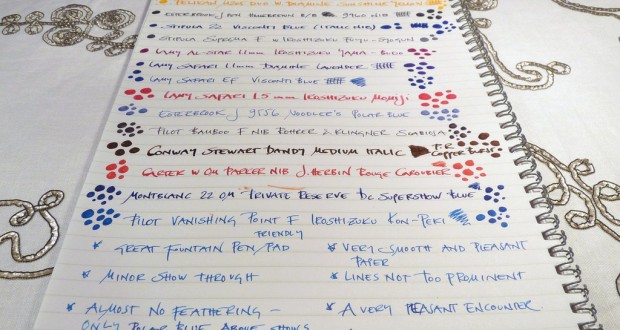 w Diamine Sunshine Yellow
Esterbrook J 9460 NIB
Stipula 22 Visconti Blue (Italic Nib)
Stipula Suprema F w Iroshizuku Fuyu-Syogun
Lamy Al-Star 1.1mm Iroshizuku Yama-Budo
Lamy Safari 1.1mm Diamine Lavender
Lamy Safari EF Visconti Blue
Lamy Safari 1.5 mm Iroshizuku Momiji
Esterbrook J 9556 Noodler's Polar Blue
Pilot Bamboo F NIB Rohrer & Klingner Scabiosa
Conway Stewart Dandy Medium Italic P.R. Copper Burst
Carter w OM Parker NIB J. Herbin Rouge Caroubier
Montblanc 22 OM Private Reserve DC Supershow Blue
Pilot Vanishing Point F Iroshizuku Kon-Peki
* Great Fountain Pen Friendly Pad
* Very Smooth and Pleasant Paper
* Minor Show Through
* Lines Not Too Prominent
* Almost No Feathering –
Only Polar Blue Above Shows
* A Very Pleasant Encounter